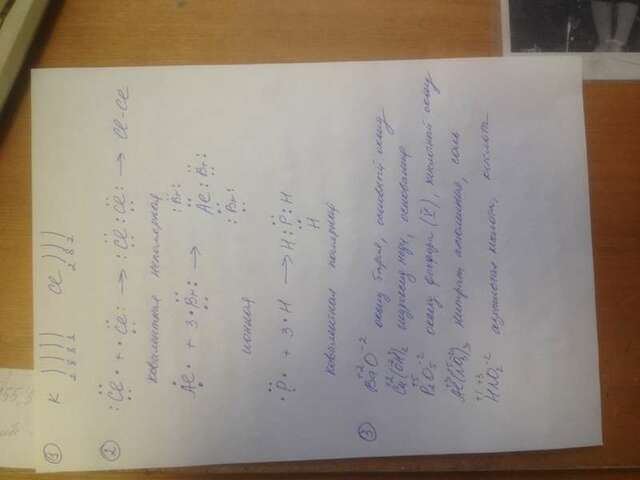 ① K )))) Cl )))
2 8 8 1 2 8 7
② :Cl• + •Cl: → :Cl:Cl: → Cl-Cl
ковалентная неполярная
Al• + 3•Br: → Al:Br:
:Br:
:Br:
ионная
•P• + 3•H → H:P:H
H
ковалентная полярная
③ BaO оксид бария, основный оксид
+2 -2
Cu(OH)2 гидроксид меди, основание
P2O5 оксид фосфора (V), кислотный оксид
+5 -2
Al(NO3)3 нитрат алюминия, соль
HNO2 азотистая кислота, кислота
+1 +3 -2